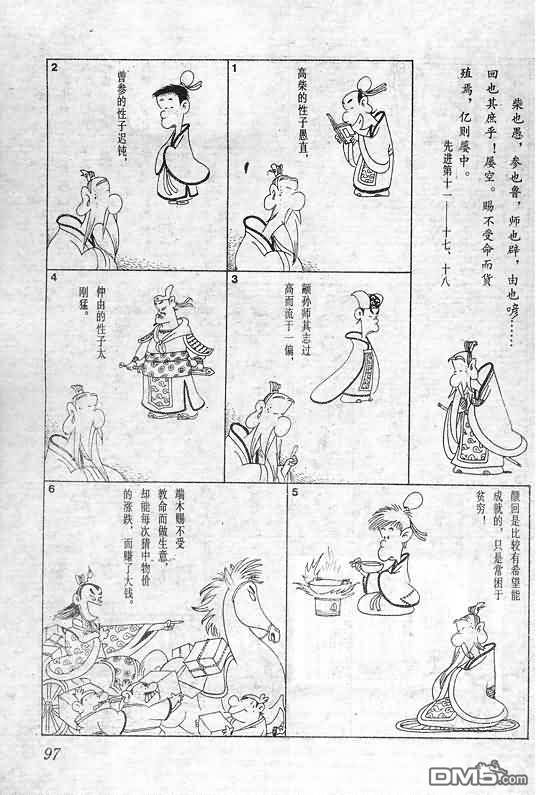 柴也愚，参也鲁，师也辟，由也喭……
回也其庶乎！屡空。赐不受命而货
殖焉，亿则屡中。
先进第十一——十七、十八
1
高柴的性子愚直，
2
曾参的性子迟钝，
3
颛孙师其志过
高而流于一偏，
4
仲由的性子太
刚猛。
5
颜回是比较有希望能
成就的，只是常困于
贫穷！
6
端木赐不受
教命而做生意，
却能每次猜中物价
的涨跌，而赚了大钱。
97
DM5.com